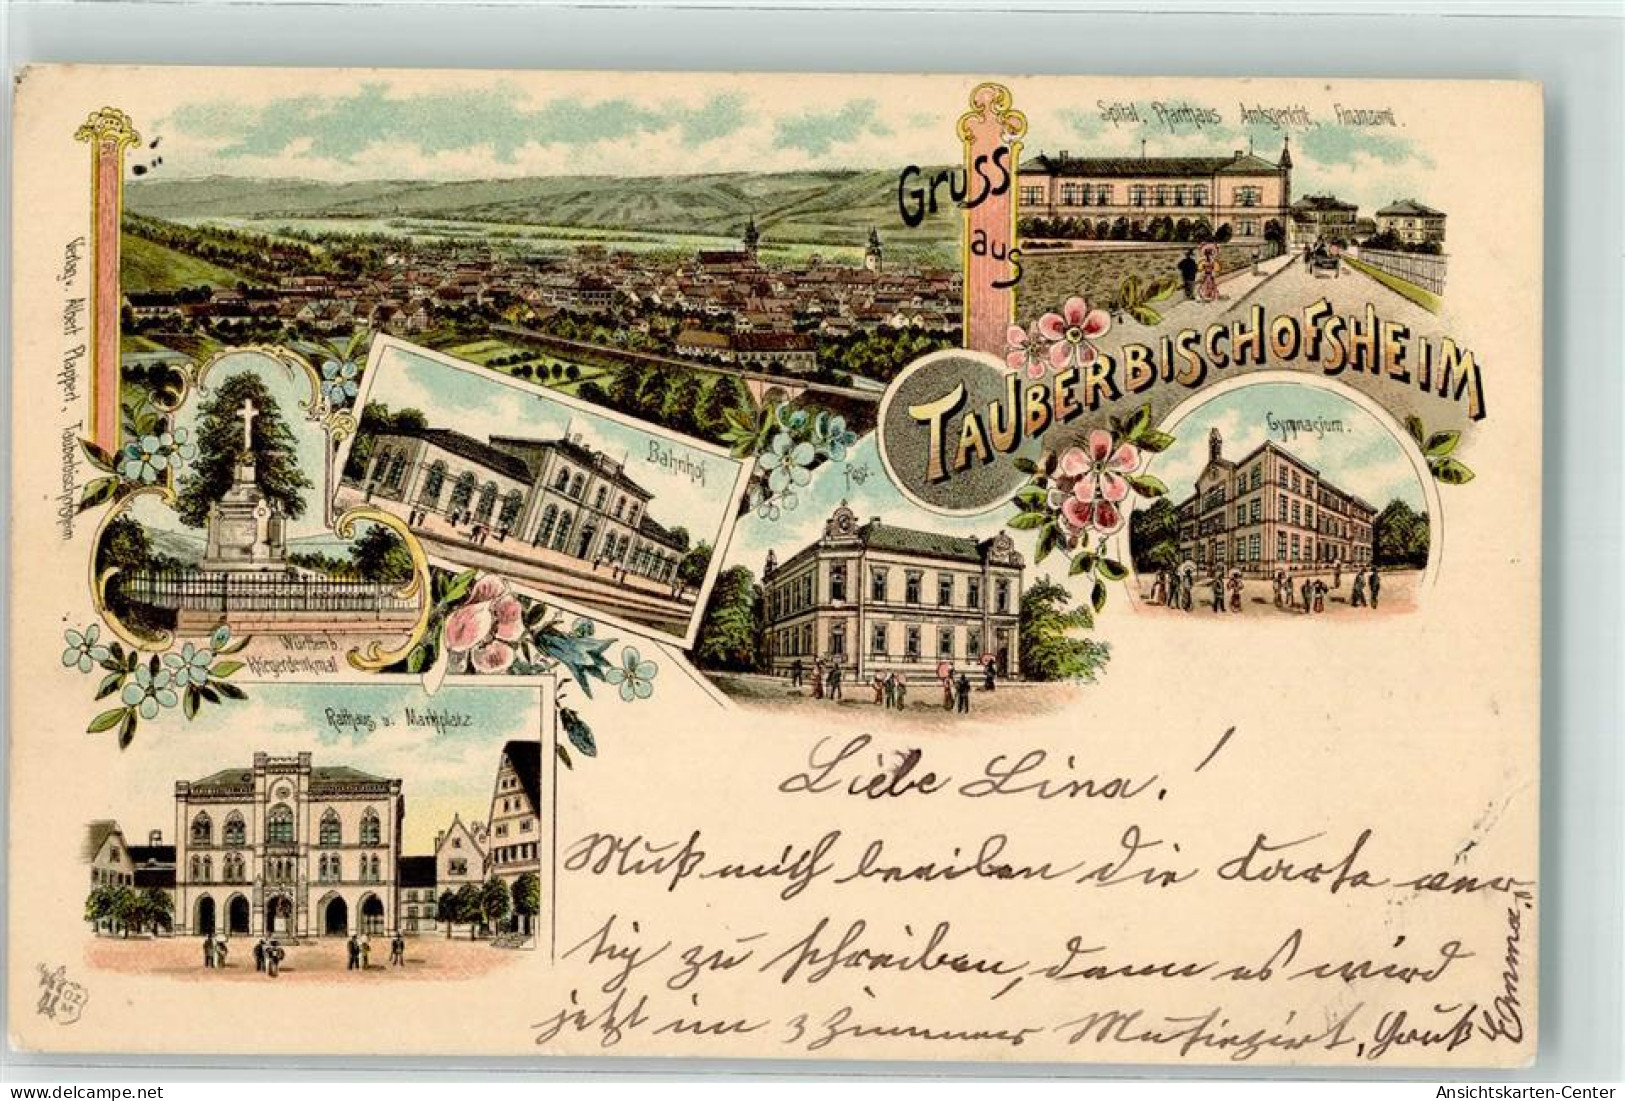 Spital, Pfarrhaus Amtsgericht, Finanzamt.
Gruss
aus
TAUBERBISCHOFSHEIM
Verlag v. Albert Plappert, Tauberbischofsheim.
Bahnhof
Post.
Gymnasium.
Württemb.
Kriegerdenkmal
Rathaus u. Marktplatz
Liebe Lina!
Muß mich beeilen die Karte
zu schreiben, denn es wird
jetzt im 3 Zimmer Musiziert, Gruß
Emma.
Ansichtskarten-Center